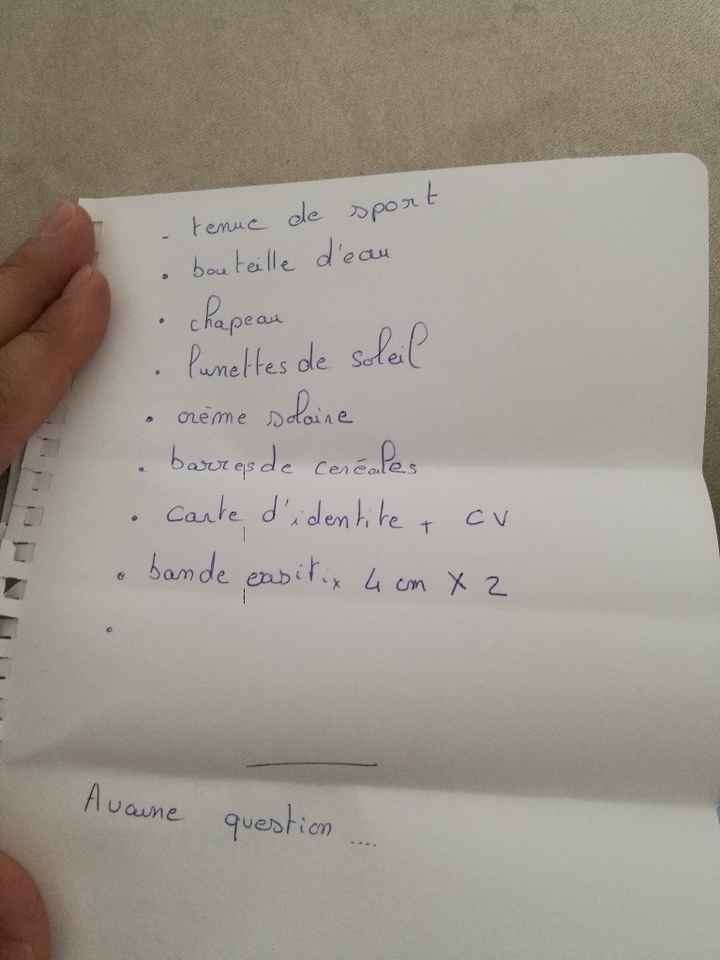 - tenue de sport
• bouteille d'eau
• chapeau
• lunettes de soleil
• crème solaire
• barres de céréales
• carte d'identite + CV
• bande 4 cm X 2
•
Aucune question ....